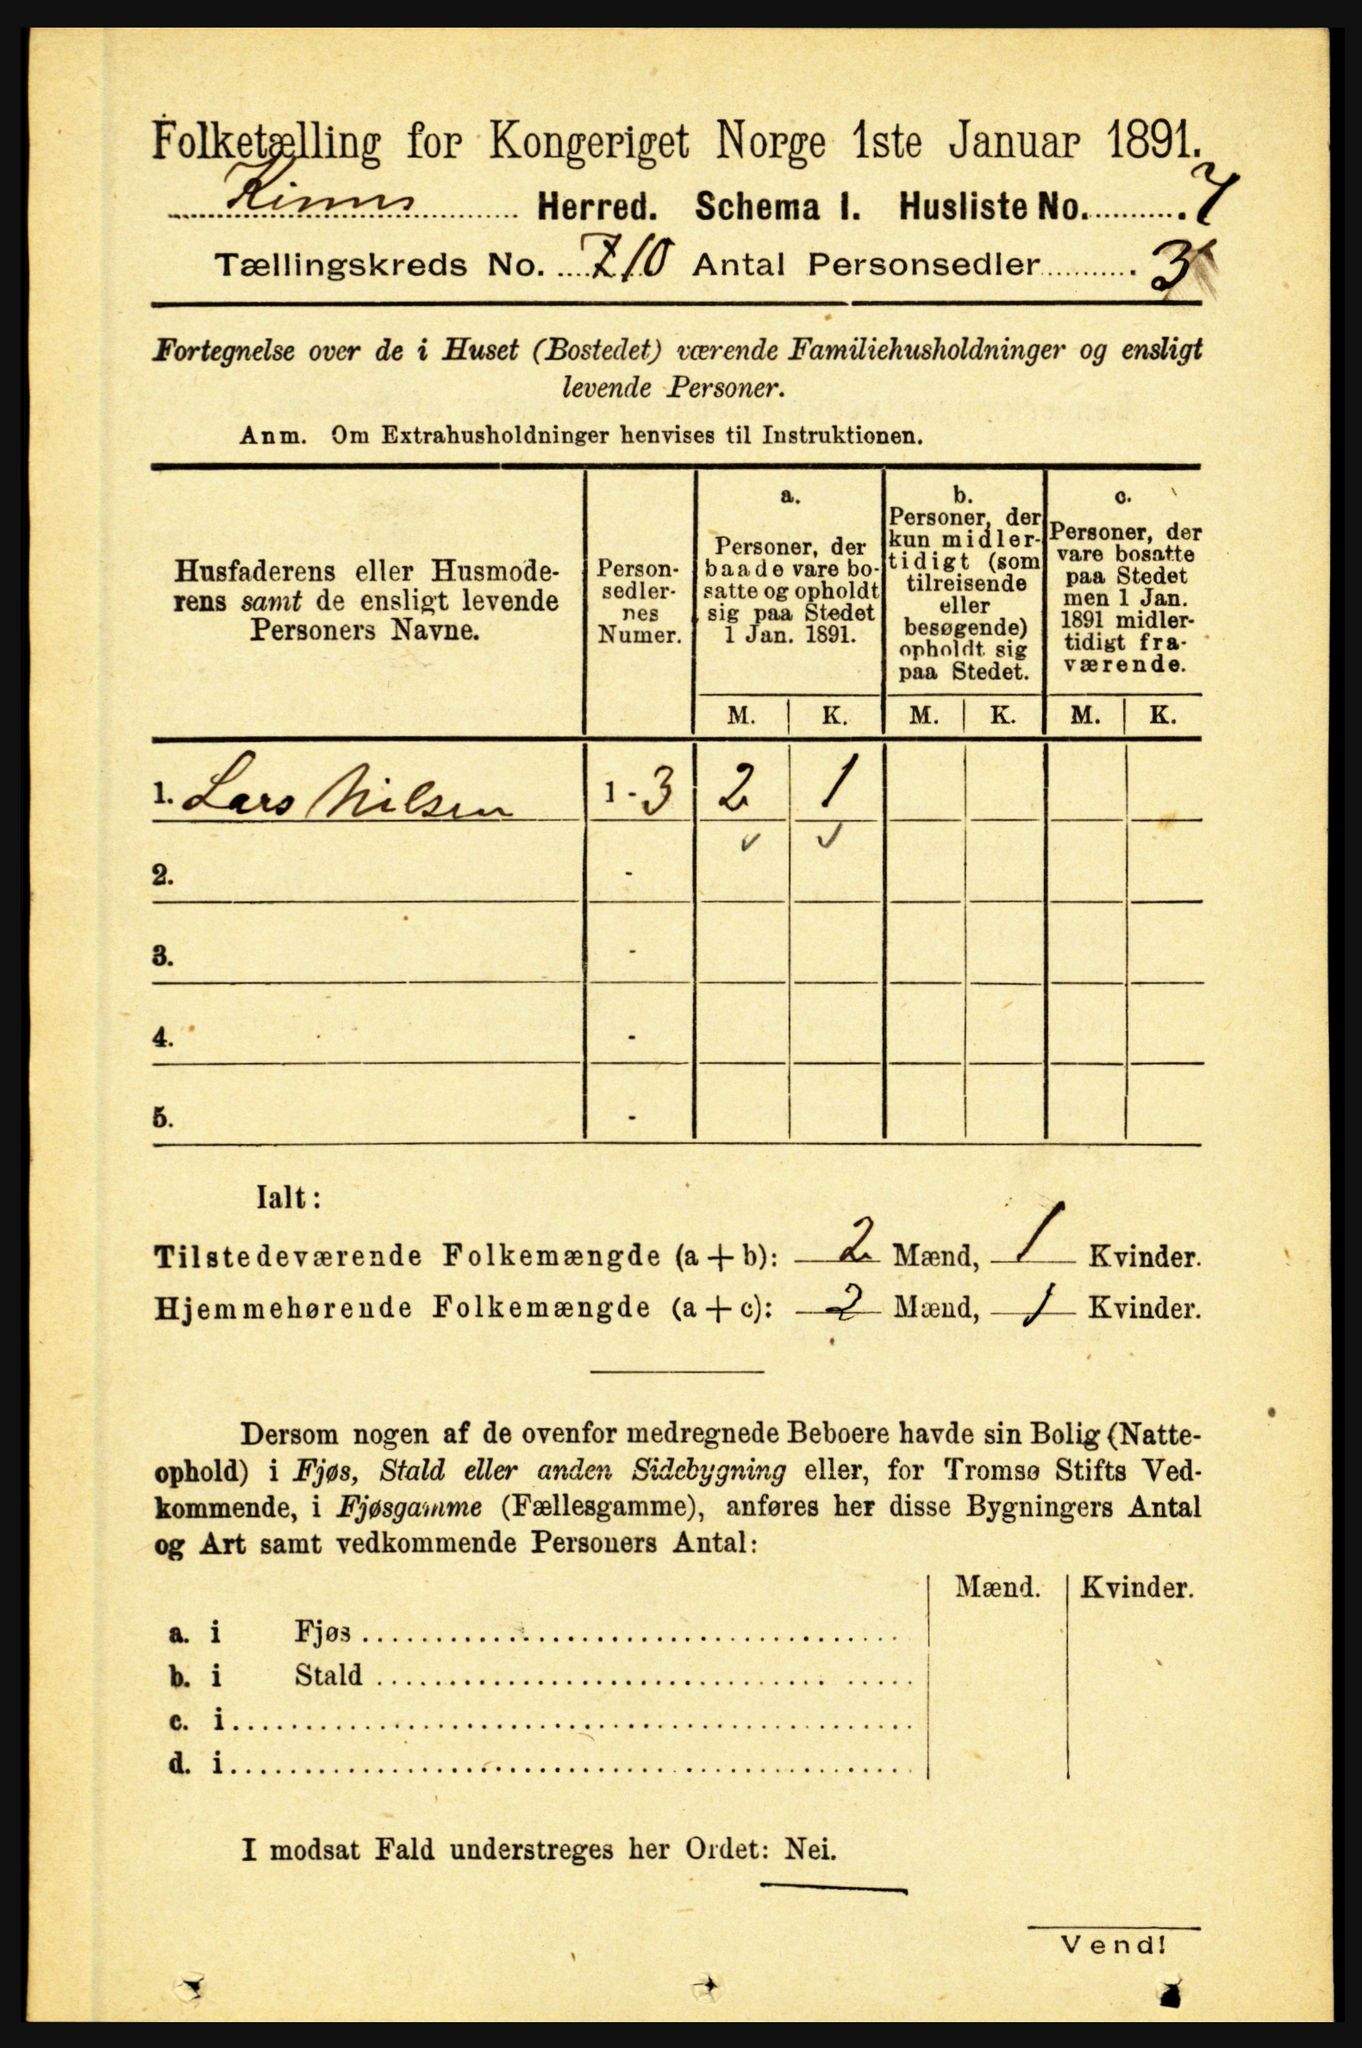 Folketælling for Kongeriget Norge 1ste Januar 1891.
Kinns Herred. Schema I. Husliste No. 7
Tællingskreds No. 710 Antal Personsedler 3
Fortegnelse over de i Huset (Bostedet) værende Familiehusholdninger og ensligt
levende Personer.
Anm. Om Extrahusholdninger henvises til Instruktionen.
Husfaderens eller Husmode-
rens samt de ensligt levende
Personers Navne.
Person-
sedler-
nes
Numer.
a.
Personer, der
baade vare bo-
satte og opholdt
sig paa Stedet
1 Jan. 1891.
b.
Personer, der
kun midler-
tidigt (som
tilreisende
eller
besøgende)
opholdt sig
paa Stedet.
c.
Personer, der
vare bosatte
paa Stedet
men 1 Jan.
1891 midler-
tidigt fra-
værende.
M. K. M. K. M. K.
1. Lars Nilsen 1 - 3 2 1
2. -
3. -
4. -
5. -
Ialt:
Tilstedeværende Folkemængde (a + b): 2 Mænd, 1 Kvinder.
Hjemmehørende Folkemængde (a + c): 2 Mænd, 1 Kvinder.
Dersom nogen af de ovenfor medregnede Beboere havde sin Bolig (Natte-
ophold) i Fjøs, Stald eller anden Sidebygning eller, for Tromsø Stifts Ved-
kommende, i Fjøsgamme (Fællesgamme), anføres her disse Bygningers Antal
og Art samt vedkommende Personers Antal:
Mænd. Kvinder.
a. i Fjøs
b. i Stald
c. i
d. i
I modsat Fald understreges her Ordet: Nei.
Vend!